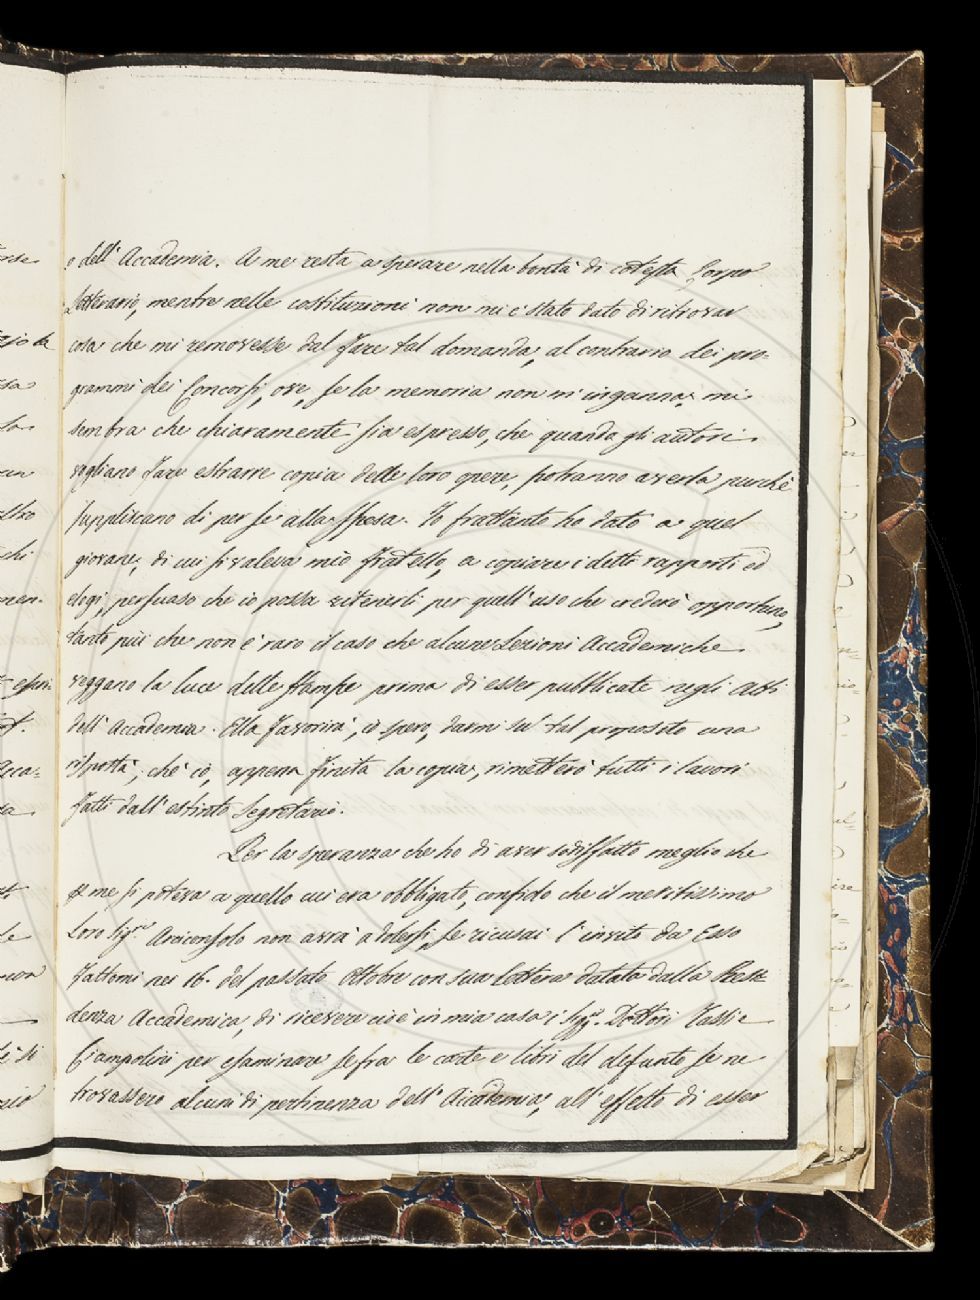 e dell' Accademia. A me resta a sperare nella bontà di cotesto Corpo
Letterario, mentre nelle costituzioni non mi è stato dato di ritrovar
cosa che mi removesse dal fare tal domanda, al contrario dei pro-
grammi dei Concorsi, ove, se la memoria non m'inganna, mi
sembra che chiaramente sia espresso, che quando gli autori
vogliano fare estrarre copia delle loro opere, potranno averla, purchè
suppliscano di per se alla spesa. Io frattanto ho dato a quel
giovane, di cui si valeva mio fratello, a copiare i detti rapporti ed
elogi, persuaso che io possa ritenerli per quell' uso che crederò opportuno,
tanto più che non è raro il caso che alcune Lezioni Accademiche
veggano la luce delle stampe prima di esser pubblicate negli Atti
dell' Accademia. Ella favorirà, io spero, darmi su tal proposito una
risposta, chè io, appena finita la copia, rimetterò tutti i lavori
fatti dall' estinto Segretario.
Per la speranza che ho di aver sodisfatto meglio che
per me si poteva a quello cui era obbligato, confido che il meritissimo
Loro Sig.re Arciconsolo non avrà a dolersi, se ricusai l' invito da Esso
fattomi nei 16. del passato Ottobre con sua Lettera datata dalla Resi-
denza Accademica, di ricevere cioè in mia casa i Sigg.ri Dottori Tassi e
Ciampolini per esaminare se fra le carte e libri del defunto se ne
trovassero alcuni di pertinenza dell' Accademia, all' effetto di esser